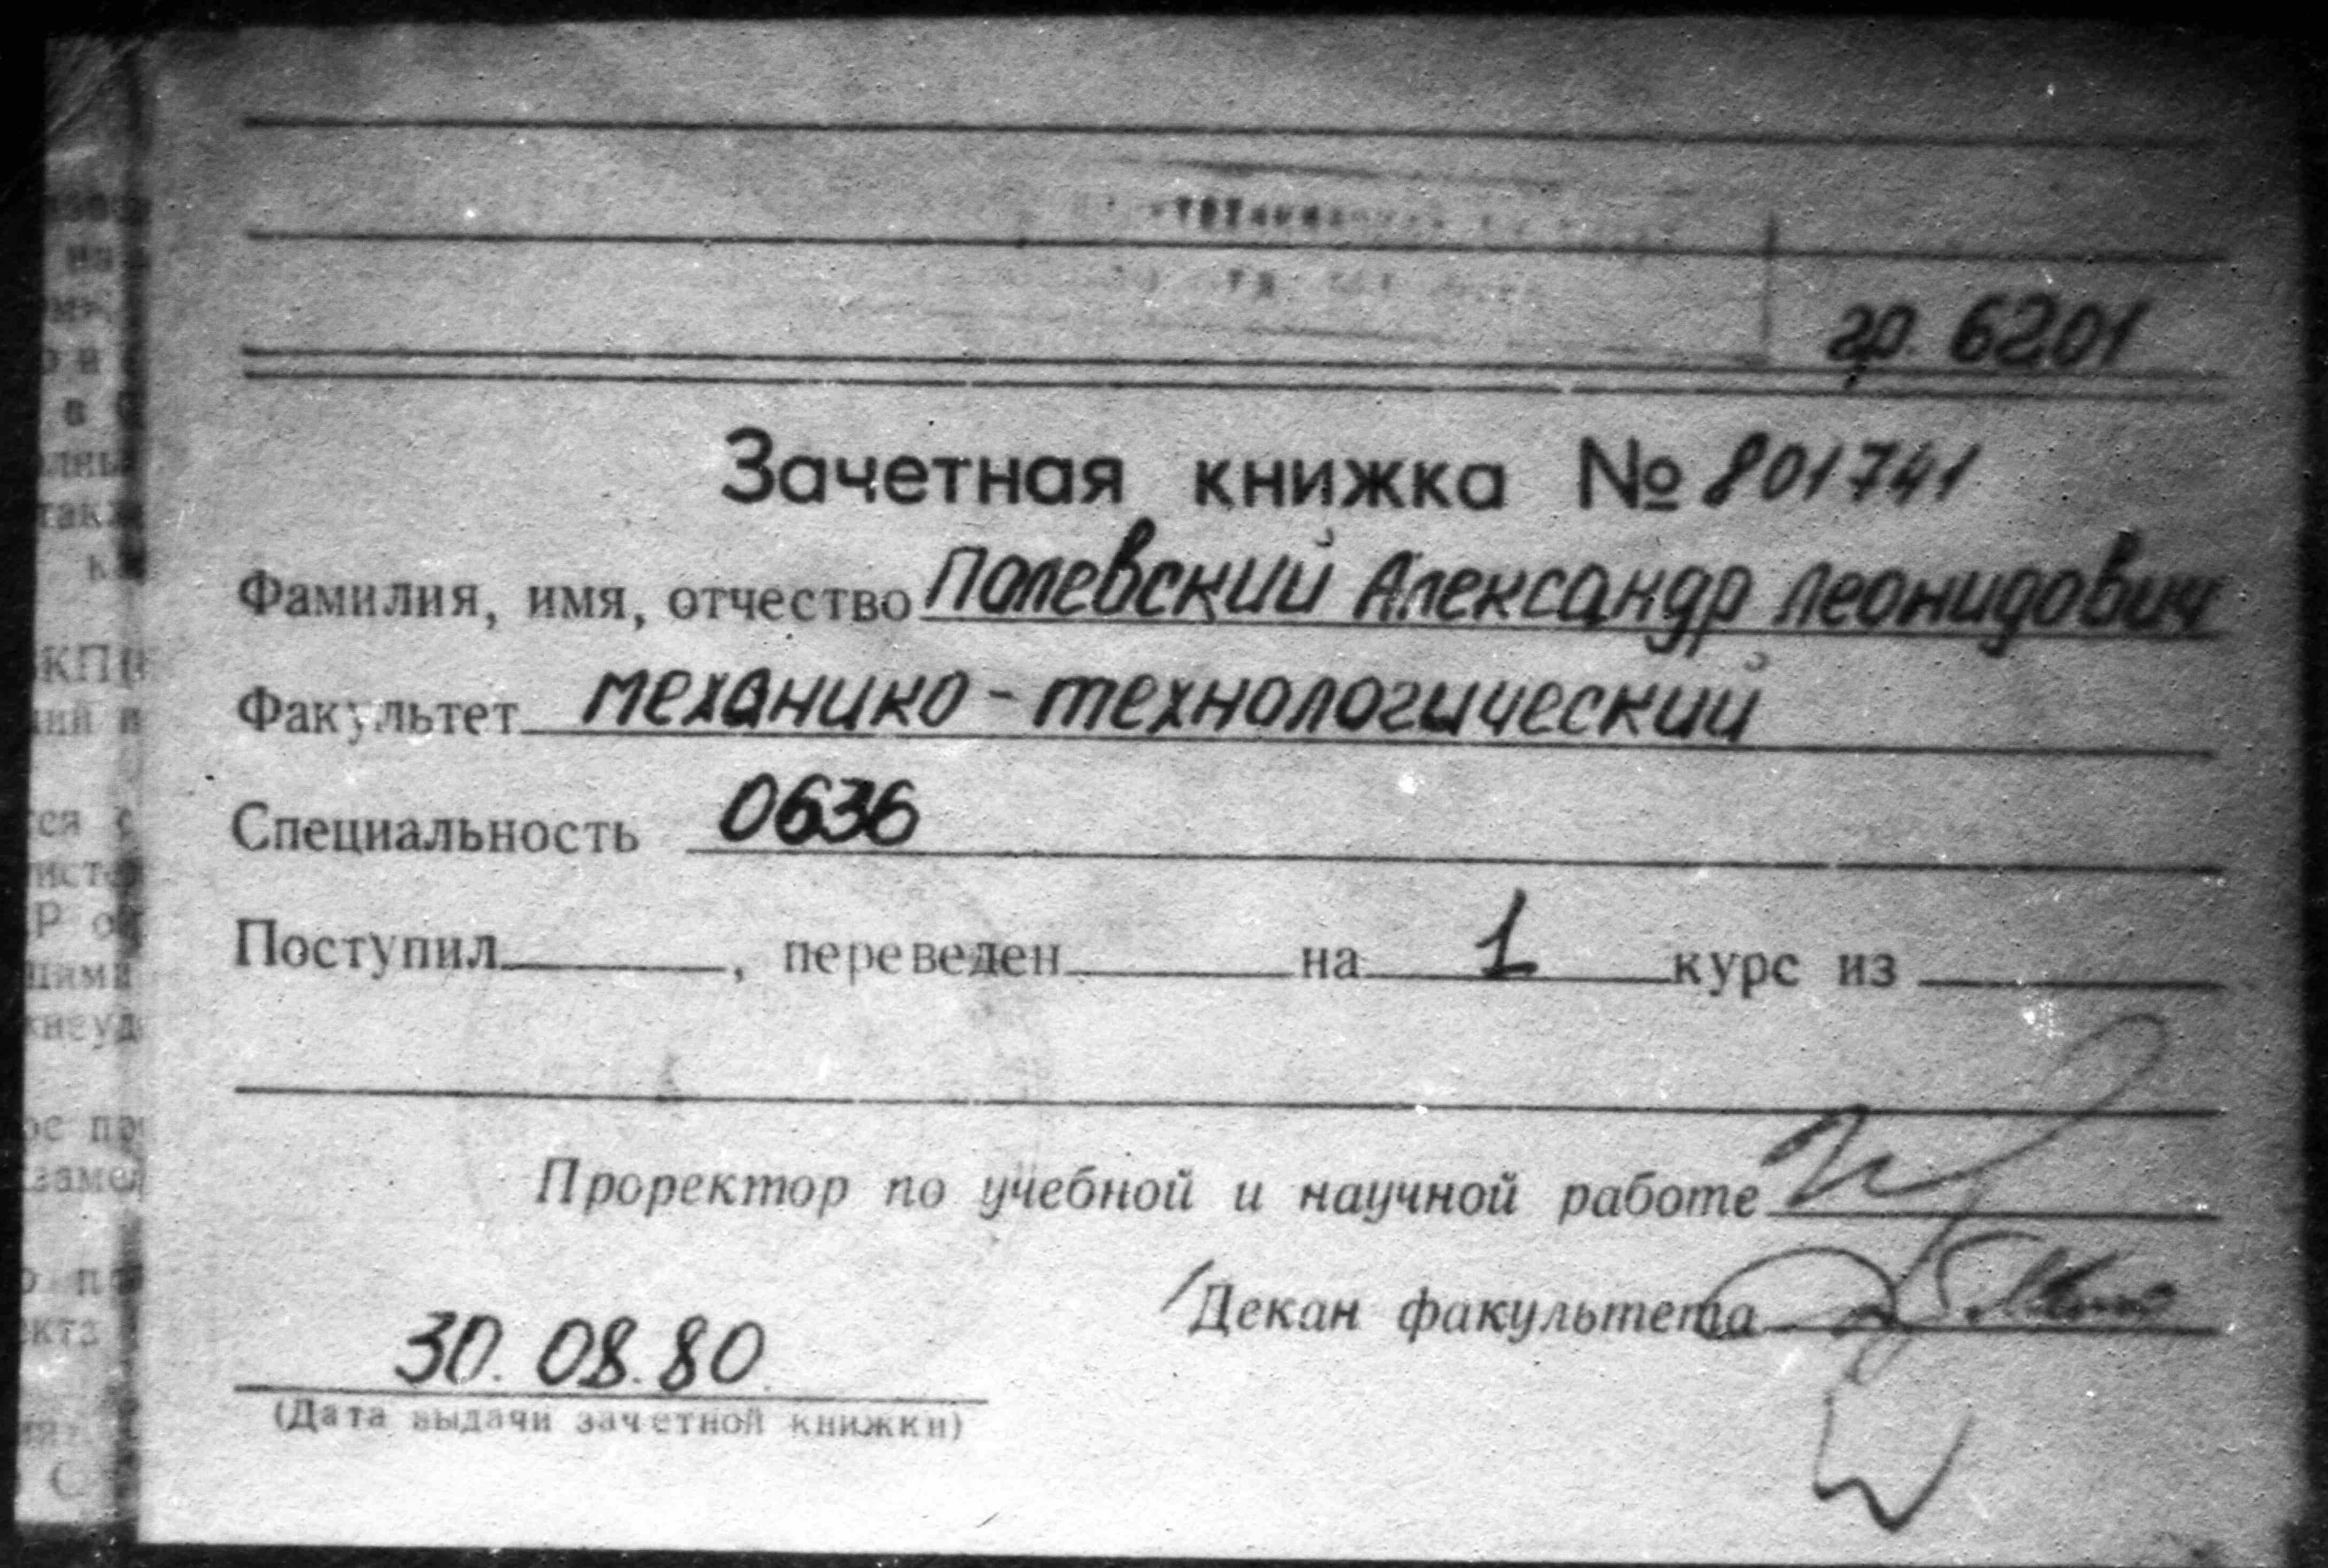 гр. 6201
Зачетная книжка № 801741
Фамилия, имя, отчество Полевский Александр Леонидович
Факультет механико-технологический
Специальность 0636
Поступил , переведен на 1 курс из
Проректор по учебной и научной работе
Декан факультета
30.08.80
(Дата выдачи зачетной книжки)